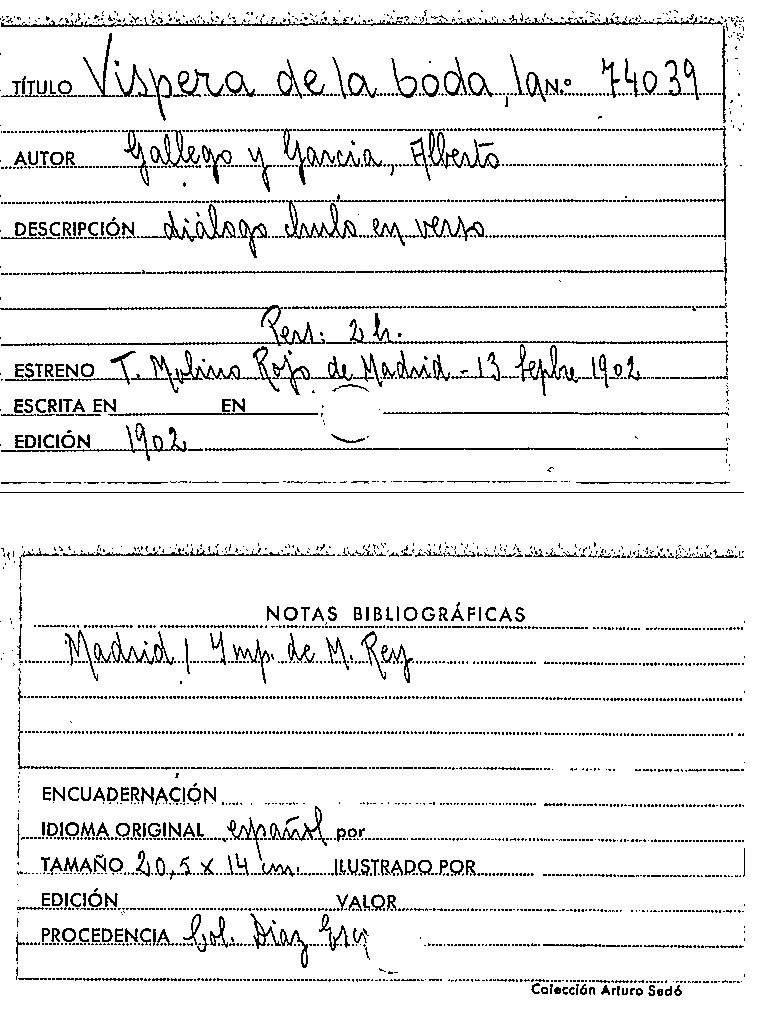 TÍTULO Vispera de la boda, la N.º 74039
AUTOR Gallego y Garcia, Alberto
DESCRIPCIÓN diálogo chulo en verso
Pers: 2 h.
ESTRENO T. Molino Rojo de Madrid - 13 Sepbre 1902
ESCRITA EN EN
EDICIÓN 1902
NOTAS BIBLIOGRÁFICAS
Madrid / Imp. de M. Rey
ENCUADERNACIÓN
IDIOMA ORIGINAL español por
TAMAÑO 20,5 x 14 cm. ILUSTRADO POR
EDICIÓN VALOR
PROCEDENCIA Col. Diaz
Colección Arturo Sedó